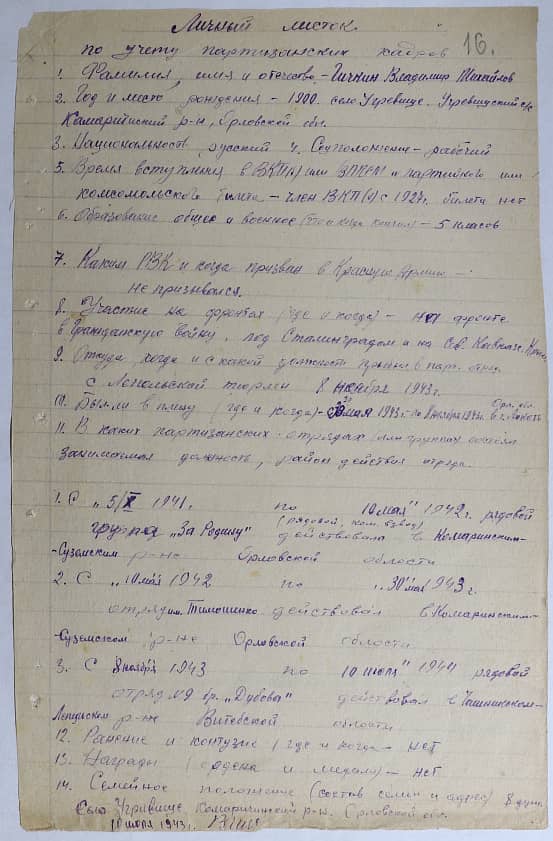 Личный листок
по учету партизанских кадров 16.
1. Фамилия, имя и отчество - Гичкин Владимир Михайлов
2. Год и место рождения - 1900. село Угревище. Угревищский с/с
Камаричский р-н, Орловской обл.
3. Национальность русский 4. Соцположение - рабочий
5. Время вступления в ВКП(б) или ВЛКСМ и партийного или
комсомольского билета - член ВКП(б) с 192 г. билета нет
6. Образование общее и военное (что когда кончил) - 5 класов
7. Каким РВК и когда призван в Красную Армию -
не призывался.
8. Участие на фронтах (где и когда) - на фронте
в Гражданскую войну, под Сталинградом и на Сев. Кавказе,
9. Откуда, когда и с какой должности прибыл в парт. отряд
с Лепельской тюрмы 8 ноября 1943 г.
10. Был ли в плену (где и когда) - с 30 мая 1943 г. по 8 ноября 1943 г. Орл. обл. в г. Локоть
11. В каких партизанских отрядах или группах состоял
занимаемая должность, район действия отряда.
1. С "5/X 1941 г. по 10 мая" 1942 г. рядовой
(рядовой, ком. взвод)
группа "За Родину" действовала в Комаринским-
-Суземским р-не Орловской области
2. С "10 мая 1942 по "30 мая 1943 г.
отряд им. Тимошенко действовал в Комаринским-
-Суземском р-не Орловской области
3. С 8 ноября 1943 по 10 июля" 1944 рядовой
отряд №9 бр. "Дубова" действовал в Чашникском-
Лепельском р-не Витебской области
12. Ранение и контузие (где и когда - нет
13. Награды (ордена и медали) - нет
14. Семейное положение (состав семьи и адрес) 8 душ
Село Угривище Камаричский р-н. Орловской обл.
10 июля 1943 г.